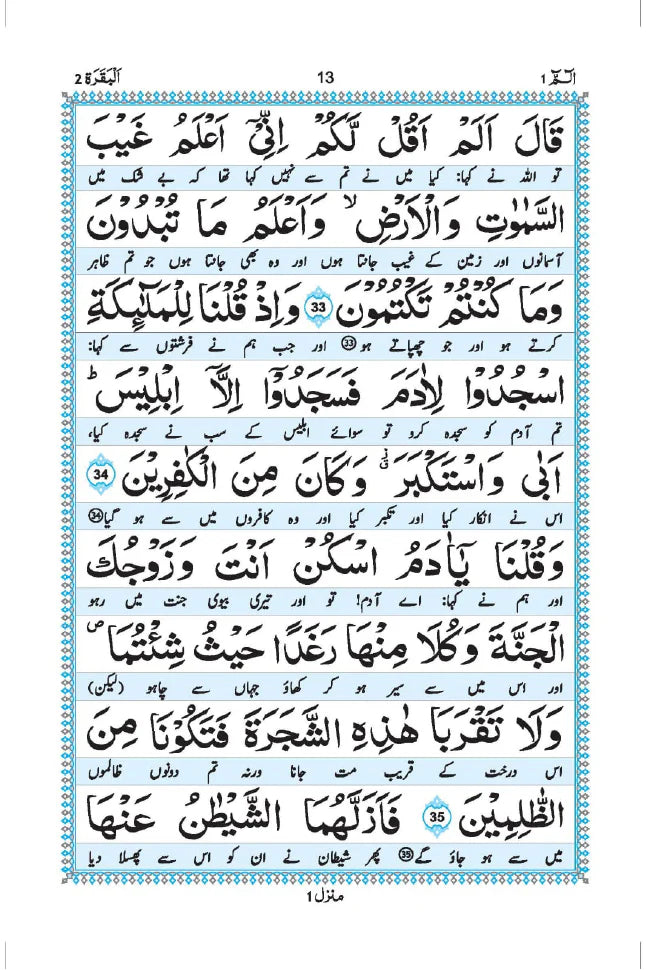 الٓمّٓ 1 13 اَلْبَقَرَة 2
قَالَ اَلَمْ اَقُلْ لَّكُمْ اِنِّیْۤ اَعْلَمُ غَیْبَ
تو اللہ نے کہا: کیا میں نے تم سے نہیں کہا تھا کہ بے شک میں
السَّمٰوٰتِ وَالْاَرْضِ ۙ وَاَعْلَمُ مَا تُبْدُوْنَ
آسمانوں اور زمین کے غیب جانتا ہوں اور وہ بھی جانتا ہوں جو تم ظاہر
وَمَا كُنْتُمْ تَكْتُمُوْنَ 33 وَاِذْ قُلْنَا لِلْمَلٰٓئِكَةِ
کرتے ہو اور جو چھپاتے ہو 33 اور جب ہم نے فرشتوں سے کہا:
اسْجُدُوْا لِاٰدَمَ فَسَجَدُوْۤا اِلَّاۤ اِبْلِیْسَ ؕ
تم آدم کو سجدہ کرو تو سوائے ابلیس کے سب نے سجدہ کیا،
اَبٰى وَاسْتَكْبَرَ ۫ۗ وَكَانَ مِنَ الْكٰفِرِیْنَ 34
اس نے انکار کیا اور تکبر کیا اور وہ کافروں میں سے ہو گیا 34
وَقُلْنَا یٰۤاٰدَمُ اسْكُنْ اَنْتَ وَزَوْجُكَ
اور ہم نے کہا: اے آدم! تو اور تیری بیوی جنت میں رہو
الْجَنَّةَ وَكُلَا مِنْهَا رَغَدًا حَیْثُ شِئْتُمَا ۪
اور اس میں سے سیر ہو کر کھاؤ جہاں سے چاہو (لیکن)
وَلَا تَقْرَبَا هٰذِهِ الشَّجَرَةَ فَتَكُوْنَا مِنَ
اس درخت کے قریب مت جانا ورنہ تم دونوں ظالموں
الظّٰلِمِیْنَ 35 فَاَزَلَّهُمَا الشَّیْطٰنُ عَنْهَا
میں سے ہو جاؤ گے 35 پھر شیطان نے ان کو اس سے پھسلا دیا
منزل 1